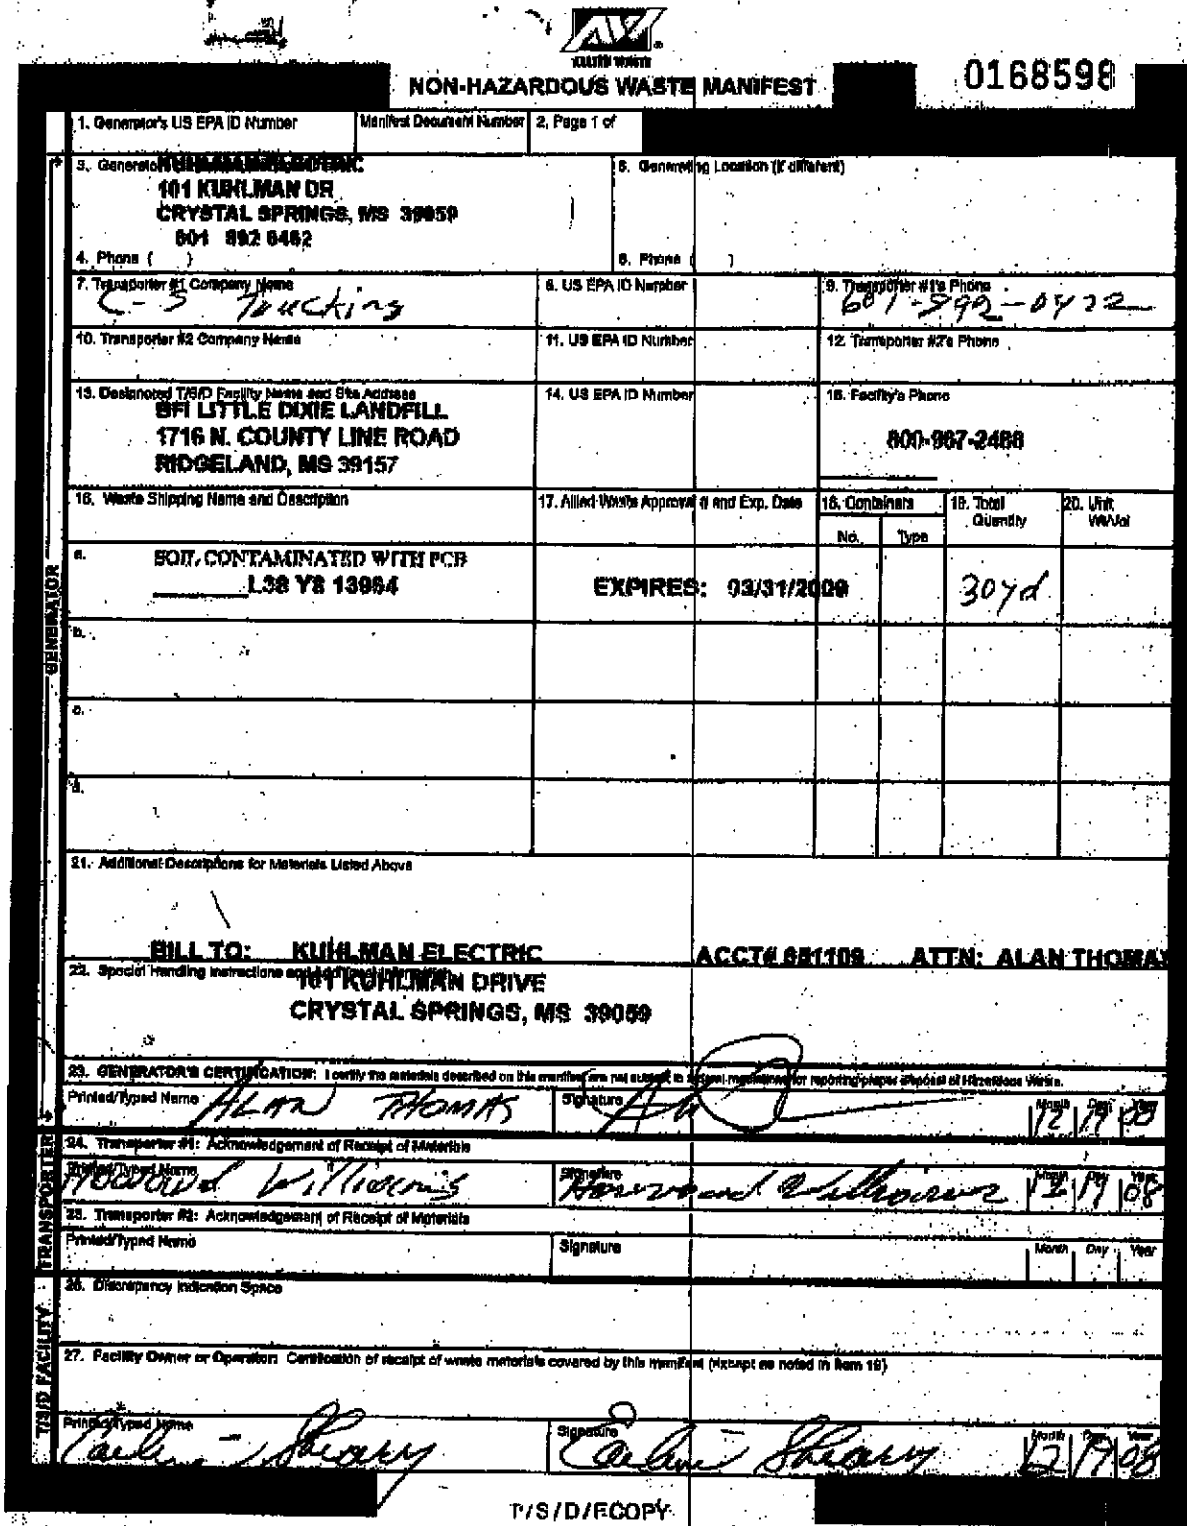 ALLIED WASTE
NON-HAZARDOUS WASTE MANIFEST
0168598
1. Generator's US EPA ID Number
Manifest Document Number
2. Page 1 of
3. Generator
KUHLMAN ELECTRIC
101 KUHLMAN DR
CRYSTAL SPRINGS, MS 39059
601 892 6462
4. Phone ( )
5. Generating Location (if different)
6. Phone ( )
7. Transporter #1 Company Name
C-S Trucking
8. US EPA ID Number
9. Transporter #1's Phone
10. Transporter #2 Company Name
11. US EPA ID Number
12. Transporter #2's Phone
13. Designated T/S/D Facility Name and Site Address
BFI LITTLE DIXIE LANDFILL
1716 N. COUNTY LINE ROAD
RIDGELAND, MS 39157
14. US EPA ID Number
15. Facility's Phone
800-967-2488
16. Waste Shipping Name and Description
17. Allied Waste Approval # and Exp. Date
18. Containers
No. Type
19. Total Quantity
20. Unit Wt/Vol
a.
SOIL CONTAMINATED WITH PCB
L38 Y8 13984
EXPIRES: 03/31/2009
30yd
b.
c.
d.
21. Additional Descriptions for Materials Listed Above
BILL TO: KUHLMAN ELECTRIC ACCT# 651109 ATTN: ALAN THOMAS
22. Special Handling Instructions and Additional Information
101 KUHLMAN DRIVE
CRYSTAL SPRINGS, MS 39059
23. GENERATOR'S CERTIFICATION: I certify the materials described on this manifest are not subject to federal regulations for reporting proper disposal of Hazardous Waste.
Printed/Typed Name ALAN THOMAS
Signature
Month Day Year
12 19 08
24. Transporter #1: Acknowledgement of Receipt of Materials
Printed/Typed Name Howard Williams
Signature Howard Williams
Month Day Year
12 19 08
25. Transporter #2: Acknowledgement of Receipt of Materials
Printed/Typed Name
Signature
Month Day Year
26. Discrepancy Indication Space
27. Facility Owner or Operation: Certification of receipt of waste materials covered by this manifest (except as noted in item 19)
Printed/Typed Name
Signature
Month Day Year
12 19 08
GENERATOR
TRANSPORTER
T/S/D FACILITY
T/S/D/FCOPY